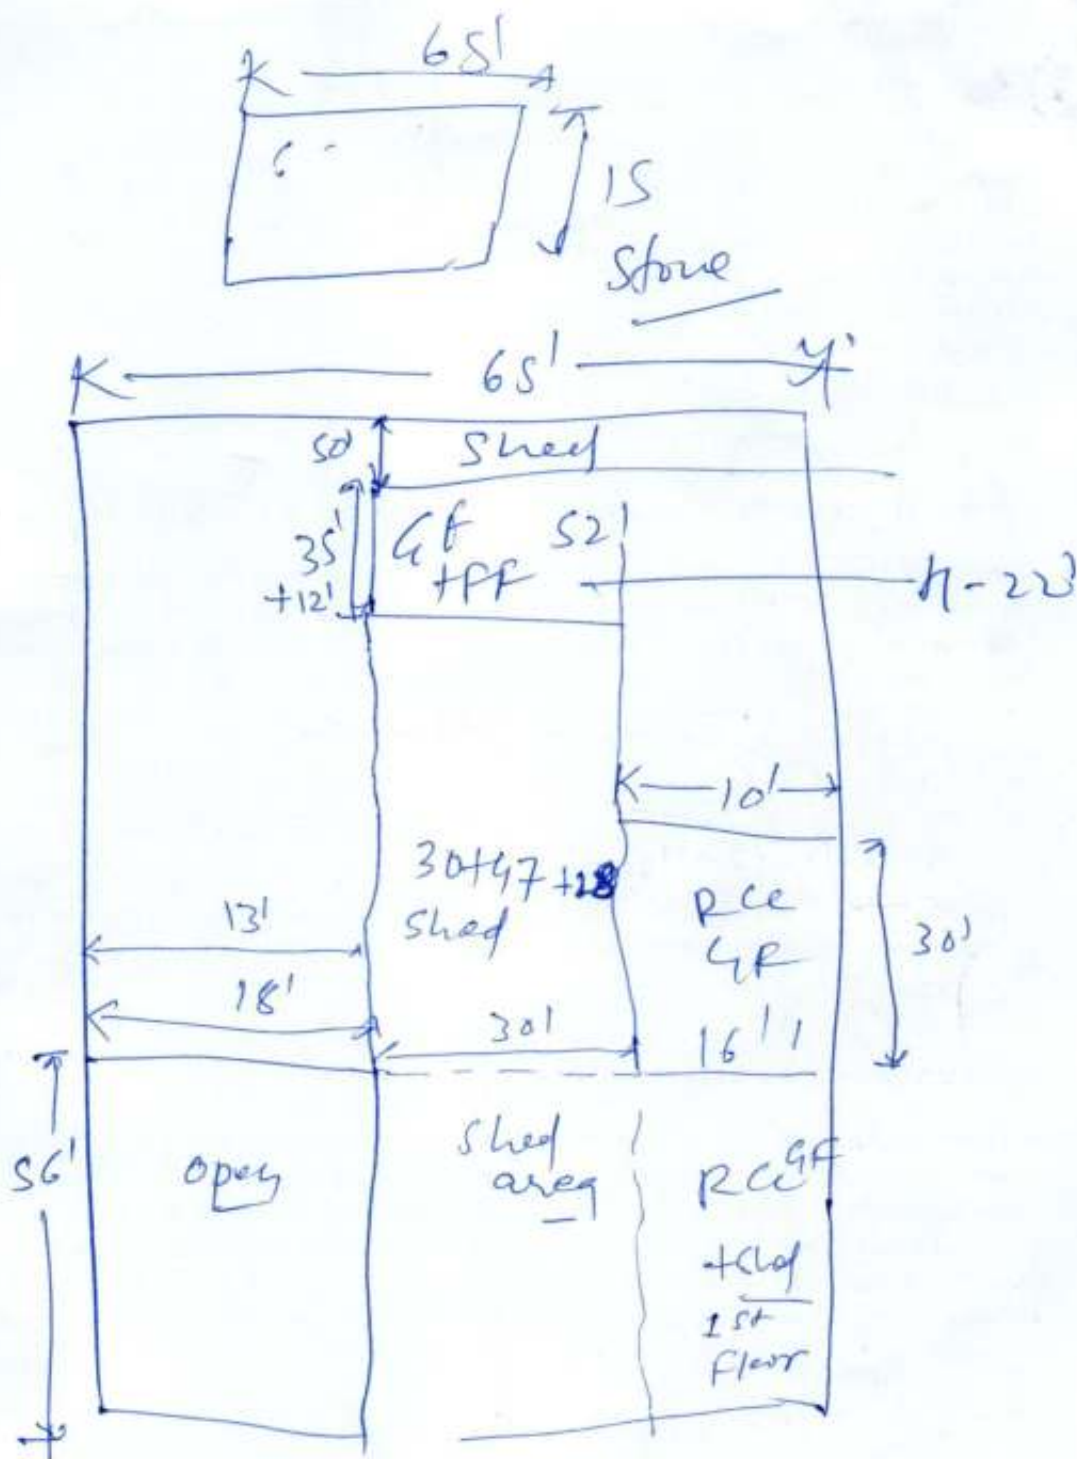 65'
15
Stone
65'
50'
Shed
35'
+12'
GF
+FF
52'
H-22'
10'
30+47+28
Shed
RCC
GF
30'
13'
18'
30'
16'
56'
open
Shed
area
RCC GF
+Shed
1st
Floor